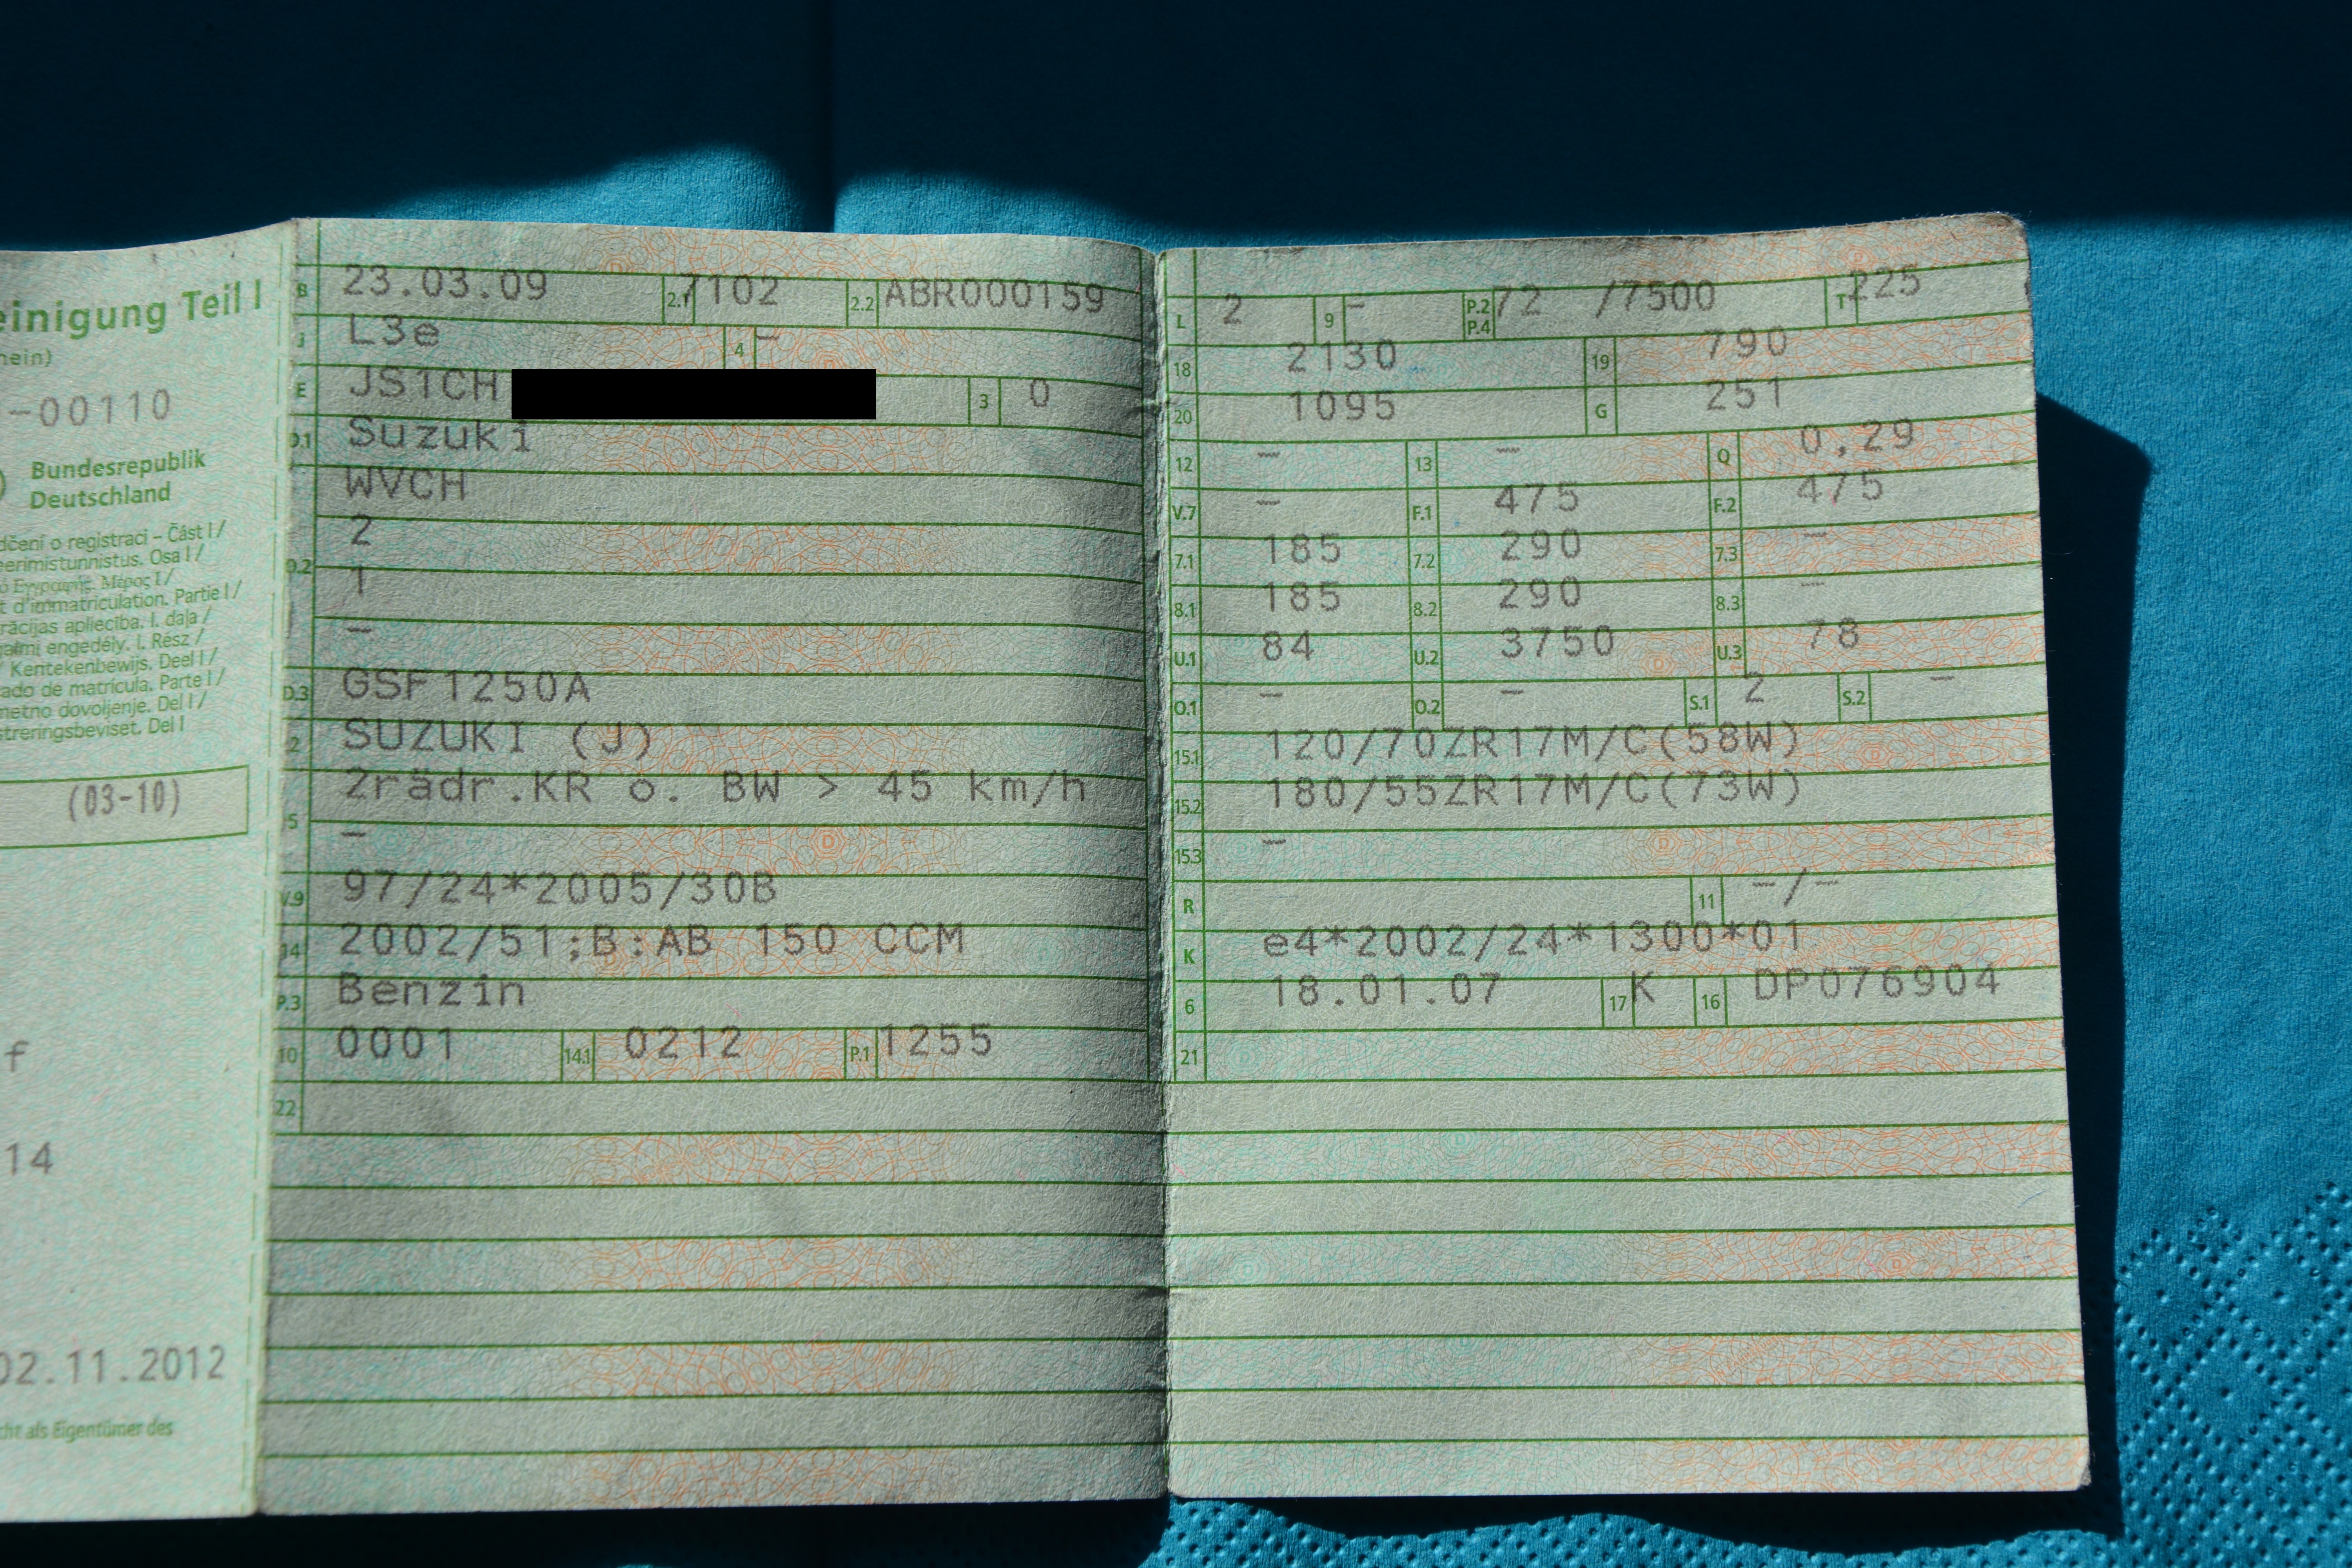 einigung Teil I
hein)
-00110
Bundesrepublik
Deutschland
dčení o registraci – Část I /
eerimistunnistus. Osa I /
ό Εγγραφής. Μέρος I /
t d'immatriculation. Partie I /
rācijas apliecība. I. daļa /
galmi engedély. I. Rész /
/ Kentekenbewijs. Deel I /
ado de matrícula. Parte I /
metno dovoljenje. Del I /
streringsbeviset. Del I
(03-10)
f
14
02.11.2012
cht als Eigentümer des
B 23.03.09 2.1 7102 2.2 ABR000159
J L3e 4 –
E JS1CH 3 0
D.1 Suzuki
WVCH
2
D.2
1
–
D.3 GSF1250A
2 SUZUKI (J)
2rädr.KR o. BW > 45 km/h
5 –
V.9 97/24*2005/30B
14 2002/51;B:AB 150 CCM
P.3 Benzin
10 0001 14.1 0212 P.1 1255
22
L 2 9 – P.2 P.4 72 /7500 T 225
18 2130 19 790
20 1095 G 251
12 – 13 – Q 0,29
V.7 – F.1 475 F.2 475
7.1 185 7.2 290 7.3 –
8.1 185 8.2 290 8.3 –
U.1 84 U.2 3750 U.3 78
O.1 – O.2 – S.1 2 S.2 –
15.1 120/70ZR17M/C(58W)
15.2 180/55ZR17M/C(73W)
15.3 –
R 11 –/–
K e4*2002/24*1300*01
6 18.01.07 17 K 16 DP076904
21